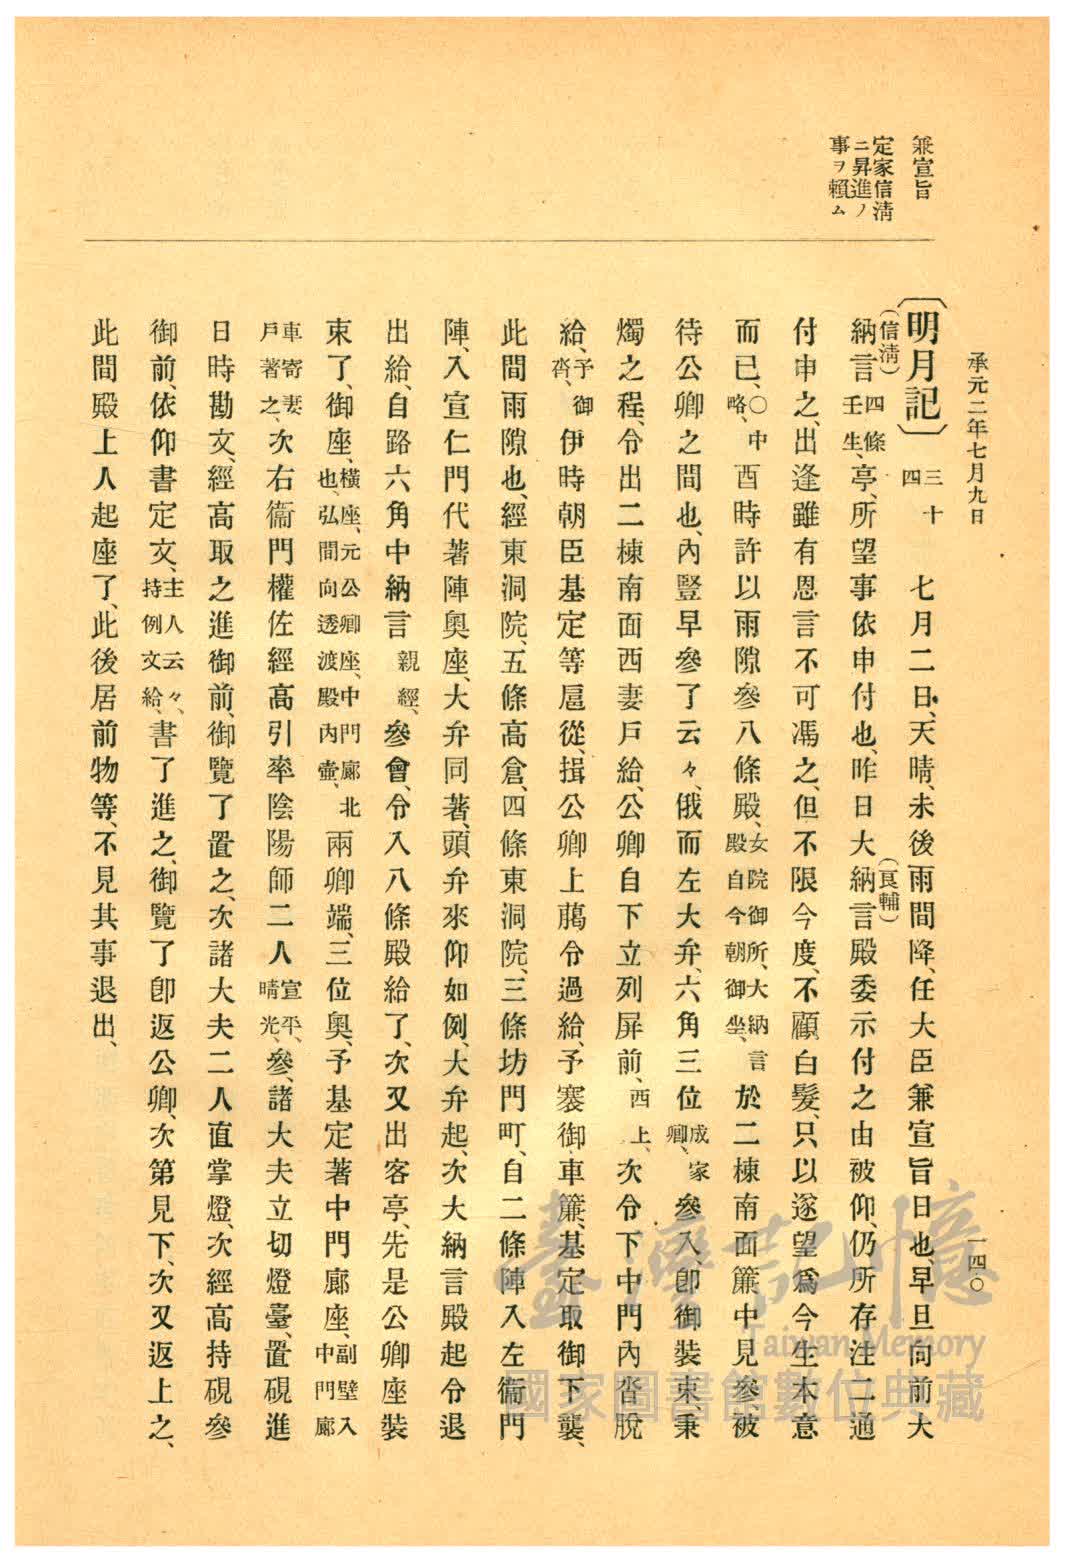 承元二年七月九日
一四〇
兼宣旨
定家信淸
ニ昇進ノ
事ヲ賴ム
〔明月記〕三十四 七月二日、天晴、未後雨間降、任大臣兼宣旨日也、早旦向前大
納言(信淸)四條壬生、亭、所望事依申付也、昨日大納言殿(良輔)委示付之由被仰、仍所存注二通
付申之、出逢雖有恩言不可馮之、但不限今度、不顧白髮、只以遂望爲今生本意
而已、〇中略、酉時許以雨隙參八條殿、女院御所、大納言殿自今朝御坐、於二棟南面簾中見參、被
待公卿之間也、內豎早參了云々、俄而左大弁、六角三位成家卿、參入、卽御裝束、秉
燭之程、令出二棟南面西妻戶給、公卿自下立列屏前、西上、次令下中門內沓脫
給、予御沓、伊時朝臣基定等扈從、揖公卿上﨟令過給、予褰御車簾、基定取御下襲、
此間雨隙也、經東洞院、五條高倉、四條東洞院、三條坊門町、自二條陣入左衞門
陣、入宣仁門代著陣奧座、大弁同著、頭弁來仰如例、大弁起、次大納言殿起令退
出給、自路六角中納言親經、參會、令入八條殿給了、次又出客亭、先是公卿座裝
束了、御座、橫座、元公卿座、中門廊北也、弘間向透渡殿內壺、兩卿端、三位奧、予基定著中門廊座、副壁入中門廊
車寄妻戶著之、次右衞門權佐經高引率陰陽師二人宣平、晴光、參、諸大夫立切燈臺、置硯進
日時勘文、經高取之進御前、御覽了置之、次諸大夫二人直掌燈、次經高持硯參
御前、依仰書定文、主人云々、持例文給、書了進之、御覽了卽返公卿、次第見下、次又返上之、
此間殿上人起座了、此後居前物等、不見其事退出、
臺灣記憶
Taiwan Memory
國家圖書館數位典藏